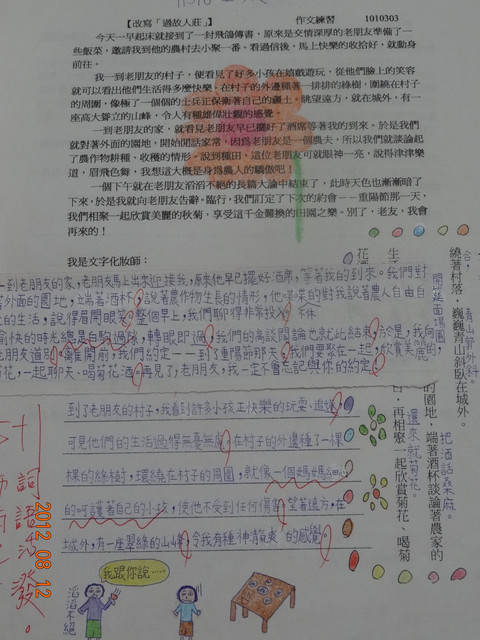 【改寫「過故人莊」】 作文練習 1010303
今天一早起床就接到了一封飛鴿傳書，原來是交情深厚的老朋友準備了一
些飯菜，邀請我到他的農村去小聚一番。看過信後，馬上快樂的收拾好，就動身
前往。
我一到老朋友的村子，便看見了好多小孩在嬉戲遊玩，從他們臉上的笑容
就可以看出他們生活得多麼快樂。在村子的外邊種著一排排的綠樹，圍繞在村子
的周圍，像極了一個個的士兵正保衛著自己的疆土。眺望遠方，就在城外，有一
座高大聳立的山峰，令人有種雄偉壯觀的感覺。
一到老朋友的家，就看見老朋友早已擺好了酒席等著我的到來。於是我們
就對著外面的園地，開始閒話家常，因為老朋友是一個農夫，所以我們就談論起
了農作物耕種、收穫的情形。說到種田，這位老朋友可就眼神一亮，說得津津樂
道，眉飛色舞，我想這大概是身為農人的驕傲吧！
一個下午就在老朋友滔滔不絕的長篇大論中結束了，此時天色也漸漸暗了
下來，於是我就向老朋友告辭。臨行，我們訂定了下次的約會——重陽節那一天，
我們相聚一起欣賞美麗的秋菊，享受這千金難換的田園之樂。別了，老友，我會
再來的！
我是文字化妝師：
一到老朋友的家，老朋友馬上出來迎接我，原來他早已擺好酒席，等著我的到來。我們對
著外面的園地，端著酒杯，說著農作物生長的情形，他
的生活，說得眉開眼笑。整個早上，我們聊得非常投入
愉快的時光總是白駒過隙，轉眼即過，我們的高談闊論也就此結束，於是，我向
老朋友道別。離開前，我們約定——到了重陽節那天，我們要聚在一起，欣賞美麗的
菊花，一起聊天、喝菊花酒，再見了，老朋友，我一定不會忘記與你的約定。
到了老朋友的村子，我看到許多小孩正快樂的玩耍、追逐，
可見他們的生活過得無憂無慮。在村子的外邊種了一棵
棵的綠樹，環繞在村子的周圍，就像一個媽媽細心
的呵護著自己的小孩，使他不受到任何傷害，望著遠方，在
城外，有一座翠綠的山峰，令我有種神清氣爽的感覺。
合，
繞著村落，巍巍青山斜臥在城外。
青山郭外斜。
開筵面場圃
的園地，端著酒杯談論著農家的
把酒話桑麻。
還來就菊花。
，再相聚一起欣賞菊花、喝菊
詞語活發。
我跟你說……
滔滔不絕
2012 08 12